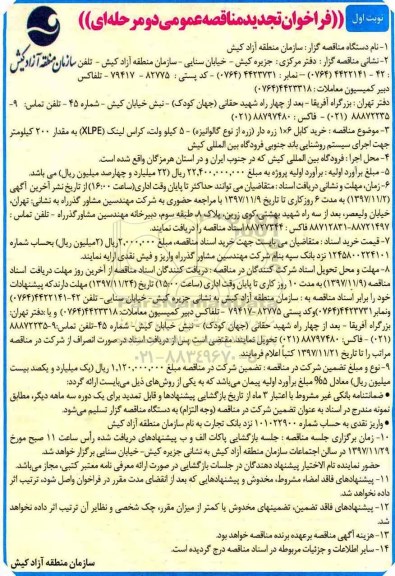 نوبت اول
((فراخوان تجدید مناقصه عمومی دو مرحله‌ای))
سازمان منطقه آزاد کیش
۱-نام دستگاه مناقصه گزار: سازمان منطقه آزاد کیش
۲- نشانی مناقصه گزار: دفتر مرکزی: جزیره کیش - خیابان سنایی - سازمان منطقه آزاد کیش - تلفن
: ۴۲ - ۴۴۲۲۱۴۱ (۰۷۶۴) - نمابر: ۴۴۲۳۷۳۱ (۰۷۶۴) - کد پستی: ۸۲۷۷۵ - ۷۹۴۱۷ - تلفاکس
دبیر کمیسیون معاملات: ۴۴۲۳۳۱۸(۰۷۶۴)
دفتر تهران: بزرگراه آفریقا - بعد از چهار راه شهید حقانی (جهان کودک) - نبش خیابان کیش - شماره ۴۵ - تلفن تماس: ۹-
۸۸۸۷۲۲۳۵ (۰۲۱) فاکس: ۸۸۷۹۷۴۸۰ (۰۲۱)
۳- موضوع مناقصه: خرید کابل ۶×۱ زره دار (زره از نوع گالوانیزه) - ۵ کیلو ولت، کراس لینک (XLPE) به مقدار ۲۰۰ کیلومتر
جهت اجرای سیستم روشنایی باند جنوبی فرودگاه بین المللی کیش
۴- محل اجرا: فرودگاه بین المللی کیش که در جنوب ایران و در استان هرمزگان واقع شده است.
۵- مبلغ برآورد اولیه: برآورد اولیه پروژه به مبلغ ۲۲,۴۰۰,۰۰۰,۰۰۰ ریال (۲۲ میلیارد و چهارصد میلیون ریال) می باشد.
۶- زمان، مهلت و نشانی دریافت اسناد: متقاضیان می توانند حداکثر تا پایان وقت اداری(ساعت ۱۶:۰۰) از تاریخ نشر آخرین آگهی
(۱۳۹۷/۱۱/۲) به مدت ۶ روز کاری تا تاریخ ۱۳۹۷/۱۱/۹ با مراجعه حضوری به شرکت مهندسین مشاور گذرراه به نشانی: تهران،
خیابان ولیعصر، بعد از سه راه شهید بهشتی، کوی زرین، پلاک ۸، طبقه سوم، دبیرخانه مهندسین مشاور گذرراه - تلفن تماس:
۸۸۷۲۱۴۹۷-۸۸۷۱۲۸۳۱ فاکس: اسناد مناقصه را دریافت نمایند.
۷- قیمت خرید اسناد: متقاضیان می بایست جهت خرید اسناد مناقصه، مبلغ ۲,۰۰۰,۰۰۰ ریال (۲میلیون ریال) بحساب شماره
نزد بانک سپه بنام شرکت مهندسین مشاور گذرراه واریز و فیش نقدی ارایه نمایند.
۸- مهلت و محل تحویل اسناد شرکت کنندگان در مناقصه: دریافت کنندگان اسناد مناقصه از آخرین روز مهلت دریافت اسناد
مناقصه (۱۳۹۷/۱۱/۹) به مدت ۱۰ روز کاری تا پایان وقت اداری (ساعت ۱۵:۰۰) تاریخ (۱۳۹۷/۱۱/۲۴) مهلت دارند که پیشنهادات
خود را برابر اسناد مناقصه به: سازمان منطقه آزاد کیش به نشانی جزیره کیش- خیابان سنایی- تلفن ۴۲-۴۴۲۲۱۴۱(۰۷۶۴)
ونمابر۴۴۲۳۷۳۱(۰۷۶۴)وکد پستی ۸۲۷۷۵ - ۷۹۴۱۷ - تلفاکس دبیر کمیسیون معاملات: ۴۴۲۳۳۱۸(۰۷۶۴) و یا :دفتر تهران:
بزرگراه آفریقا - بعد از چهار راه شهید حقانی (جهان کودک) - نبش خیابان کیش- شماره ۴۵-تلفن تماس:۹-۸۸۸۷۲۲۳۵
(۰۲۱) فاکس: ۸۸۷۹۷۴۸۰ (۰۲۱) تحویل نمایند. مقتضی است پس از دریافت اسناد در صورت انصراف از شرکت در مناقصه
مراتب را تا تاریخ ۱۳۹۷/۱۱/۲۱ کتباً اعلام فرمایند.
۹- نوع و مبلغ تضمین شرکت در مناقصه: تضمین شرکت در مناقصه مبلغ ۱,۱۲۰,۰۰۰,۰۰۰ ریال (یک میلیارد و یکصد بیست
میلیون ریال) معادل ۵% مبلغ برآورد اولیه پیمان می‌باشد که به یکی از روش‌های ذیل می‌بایست ارائه گردد:
● ضمانتنامه بانکی غیر مشروط با اعتبار ۳ ماه از تاریخ بازگشایی پیشنهادها و قابل تمدید برای یک دوره سه ماهه دیگر، مطابق
نمونه مندرج در اسناد به عنوان تضمین شرکت در مناقصه (وجه التزام) به دستگاه مناقصه گزار تسلیم می‌شود.
● واریز نقدی به حساب شماره ۱۰۱۰۲۲۹۰۰ نزد بانک تجارت به نام سازمان منطقه آزاد کیش
۱۰- زمان برگزاری جلسه مناقصه: جلسه بازگشایی پاکات الف و ب پیشنهادهای دریافت شده رأس ساعت ۱۱ صبح مورخ
۱۳۹۷/۱۱/۲۹ در سالن اجتماعات سازمان منطقه آزاد کیش به نشانی جزیره کیش- خیابان سنایی برگزار خواهد شد.
حضور نماینده تام الاختیار پیشنهاد دهندگان در جلسات بازگشایی در صورت ارائه معرفی نامه معتبر کتبی، مجاز می‌باشد.
۱۱- پیشنهادهای فاقد امضاء مشروط، مخدوش و پیشنهادهایی که بعد از انقضای مدت مقرر در فراخوان واصل شود، ترتیب اثر
داده نخواهد شد.
۱۲- پیشنهادهای فاقد تضمین، تضمینهای مخدوش یا کمتر از میزان مقرر، چک شخصی و نظایر آن ترتیب اثر داده نخواهد
شد.
۱۳- هزینه آگهی مناقصه برعهده برنده مناقصه خواهد بود.
۱۴- سایر اطلاعات و جزئیات مربوطه در اسناد مناقصه درج گردیده است.
سازمان منطقه آزاد کیش